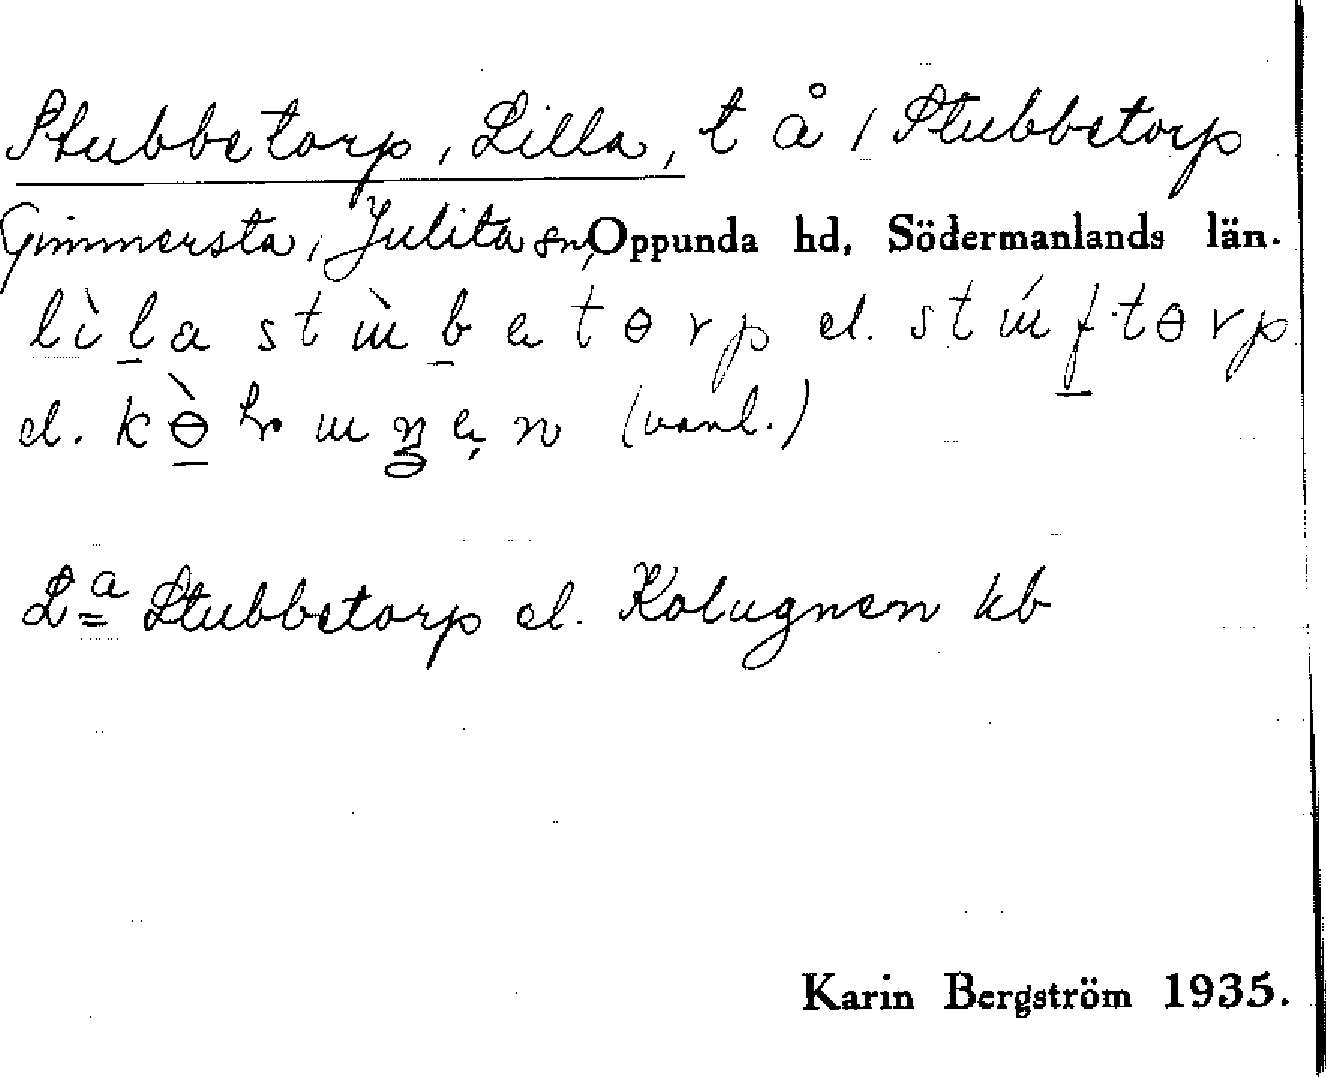 Stubbetorp, Lilla, t å / Stubbetorp
Gimmersta, Julita sn, Oppunda hd, Södermanlands län.
lìl̠a stɯ̀b̠etɵrp el. stɯ́f̠tɵrp
el. (vanl.)
L:a Stubbetorp el. Kolugnen kb
Karin Bergström 1935.